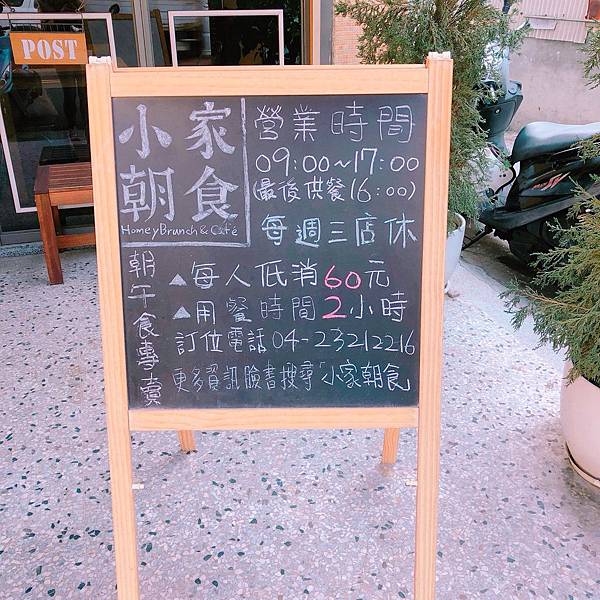 POST
小家
朝食
HomeyBrunch & Café
營業時間
09:00~17:00
(最後供餐16:00)
每週三店休
朝午食專賣
▲每人低消60元
▲用餐時間2小時
訂位電話04-23212216
更多資訊臉書搜尋「小家朝食」